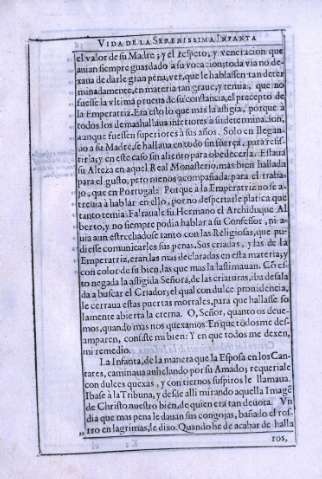 VIDA DE LA SERENISSIMA INFANTA
el valor de su Madre; y el respeto, y veneracion que
auian siempre guardado a su vocacion; todavia no de-
xaua de darle gran pena, ver, que le hablassen tan deter
minadamente, en materia tan graue, y temia, que no
fuesse la vltima prueua de su constancia, el precepto de
la Emperatriz. Era esto lo que mas la afligia, porque a
todos los demas hallaua inferiores a su determinacion,
aunque fuessen superiores a sus años. Solo en llegan-
do a su Madre, se hallaua en todo sin fuerça, para resis-
tirla, y en este caso sin aliento para obedecerla. Estaua
su Alteza en aquel Real Monasterio, mas bien hallada
para el gusto, pero menos acompañada para el traba-
jo, que en Portugal: Porque a la Emperatriz no se a-
treuia à hablar en ello, por no despertarle platica que
tanto temia: Faltauale su Hermano el Archiduque Al
berto, y no siempre podia hablar a su Confessor, ni a-
uia aun estrechadose tanto con las Religiosas, que pu-
diesse comunicarles sus penas. Sus criadas, y las de la
Emperatriz, eran las mas declaradas en esta materia, y
con color de su bien, las que mas la lastimauan. Cõ es-
to negada la afligida Señora, de las criaturas, iba desala
da a buscar el Criador; el qual con dulce prouidencia,
le cerraua estas puertas mortales, para que hallasse so-
lamente abierta la eterna. O, Señor, quanto os deue-
mos, quando mas nos quexamos. En que todos me des-
amparen, consiste mi bien: Y en que todos me dexen,
mi remedio.
La Infanta, de la manera que la Esposa en los Can-
tares, caminaua anhelando por su Amado; requeriale
con dulces quexas, y con tiernos suspiros le llamaua.
Ibase à la Tribuna, y desde alli mirando aquella Imagẽ
de Christo nuestro bien, de quien era tan deuota. Vn
dia que mas pena le dauan sus congojas, bañado el ros-
tro en lagrimas, le dixo: Quando he de acabar de halla
ros,